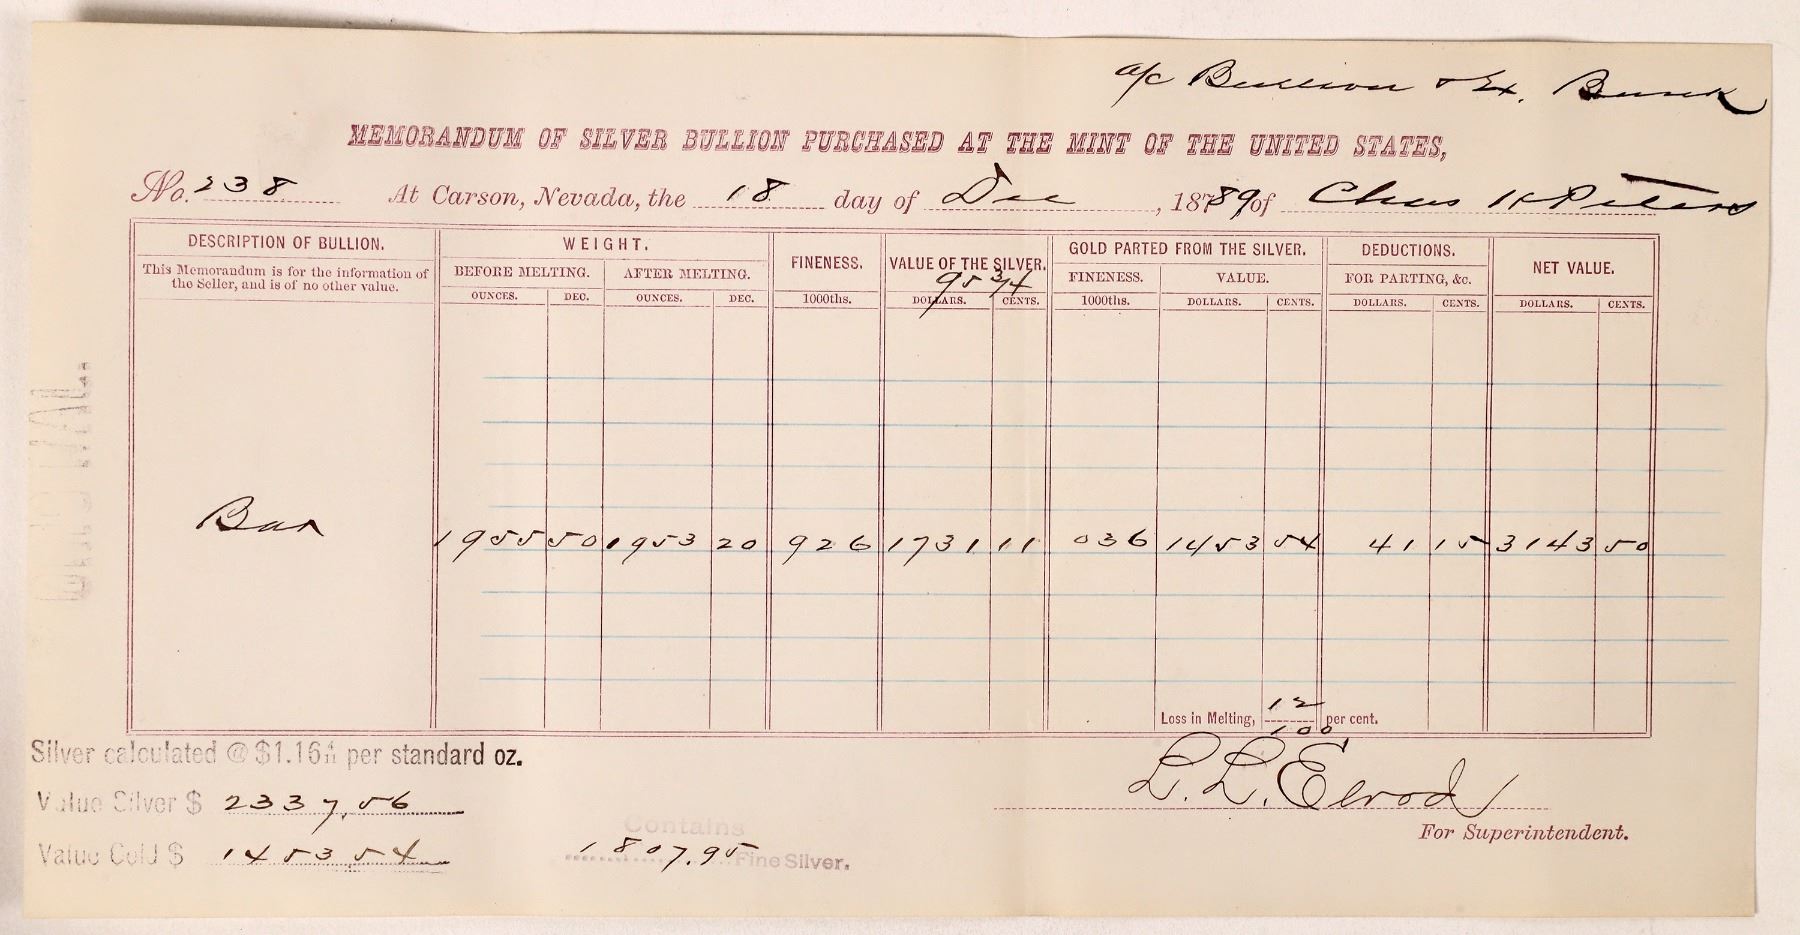 a/c Bullion & Ex. Bank
MEMORANDUM OF SILVER BULLION PURCHASED AT THE MINT OF THE UNITED STATES,
No. 238 At Carson, Nevada, the 18 day of Dec, 1889 of Chas H Peters
DESCRIPTION OF BULLION. WEIGHT. FINENESS. VALUE OF THE SILVER. GOLD PARTED FROM THE SILVER. DEDUCTIONS. NET VALUE.
This Memorandum is for the information of the Seller, and is of no other value. BEFORE MELTING. AFTER MELTING. 95 3/4 FINENESS. VALUE. FOR PARTING, &c.
OUNCES. DEC. OUNCES. DEC. 1000ths. DOLLARS. CENTS. 1000ths. DOLLARS. CENTS. DOLLARS. CENTS. DOLLARS. CENTS.
Bar 1955 50 1953 20 926 1731 11 036 1453 54 41 15 3143 50
Loss in Melting, 12/100 per cent.
Silver calculated @ $1.16 4/11 per standard oz.
L. L. Elrod
Value Silver $ 2337.56
For Superintendent.
Contains
Value Gold $ 1453.54 1807.95 Fine Silver.